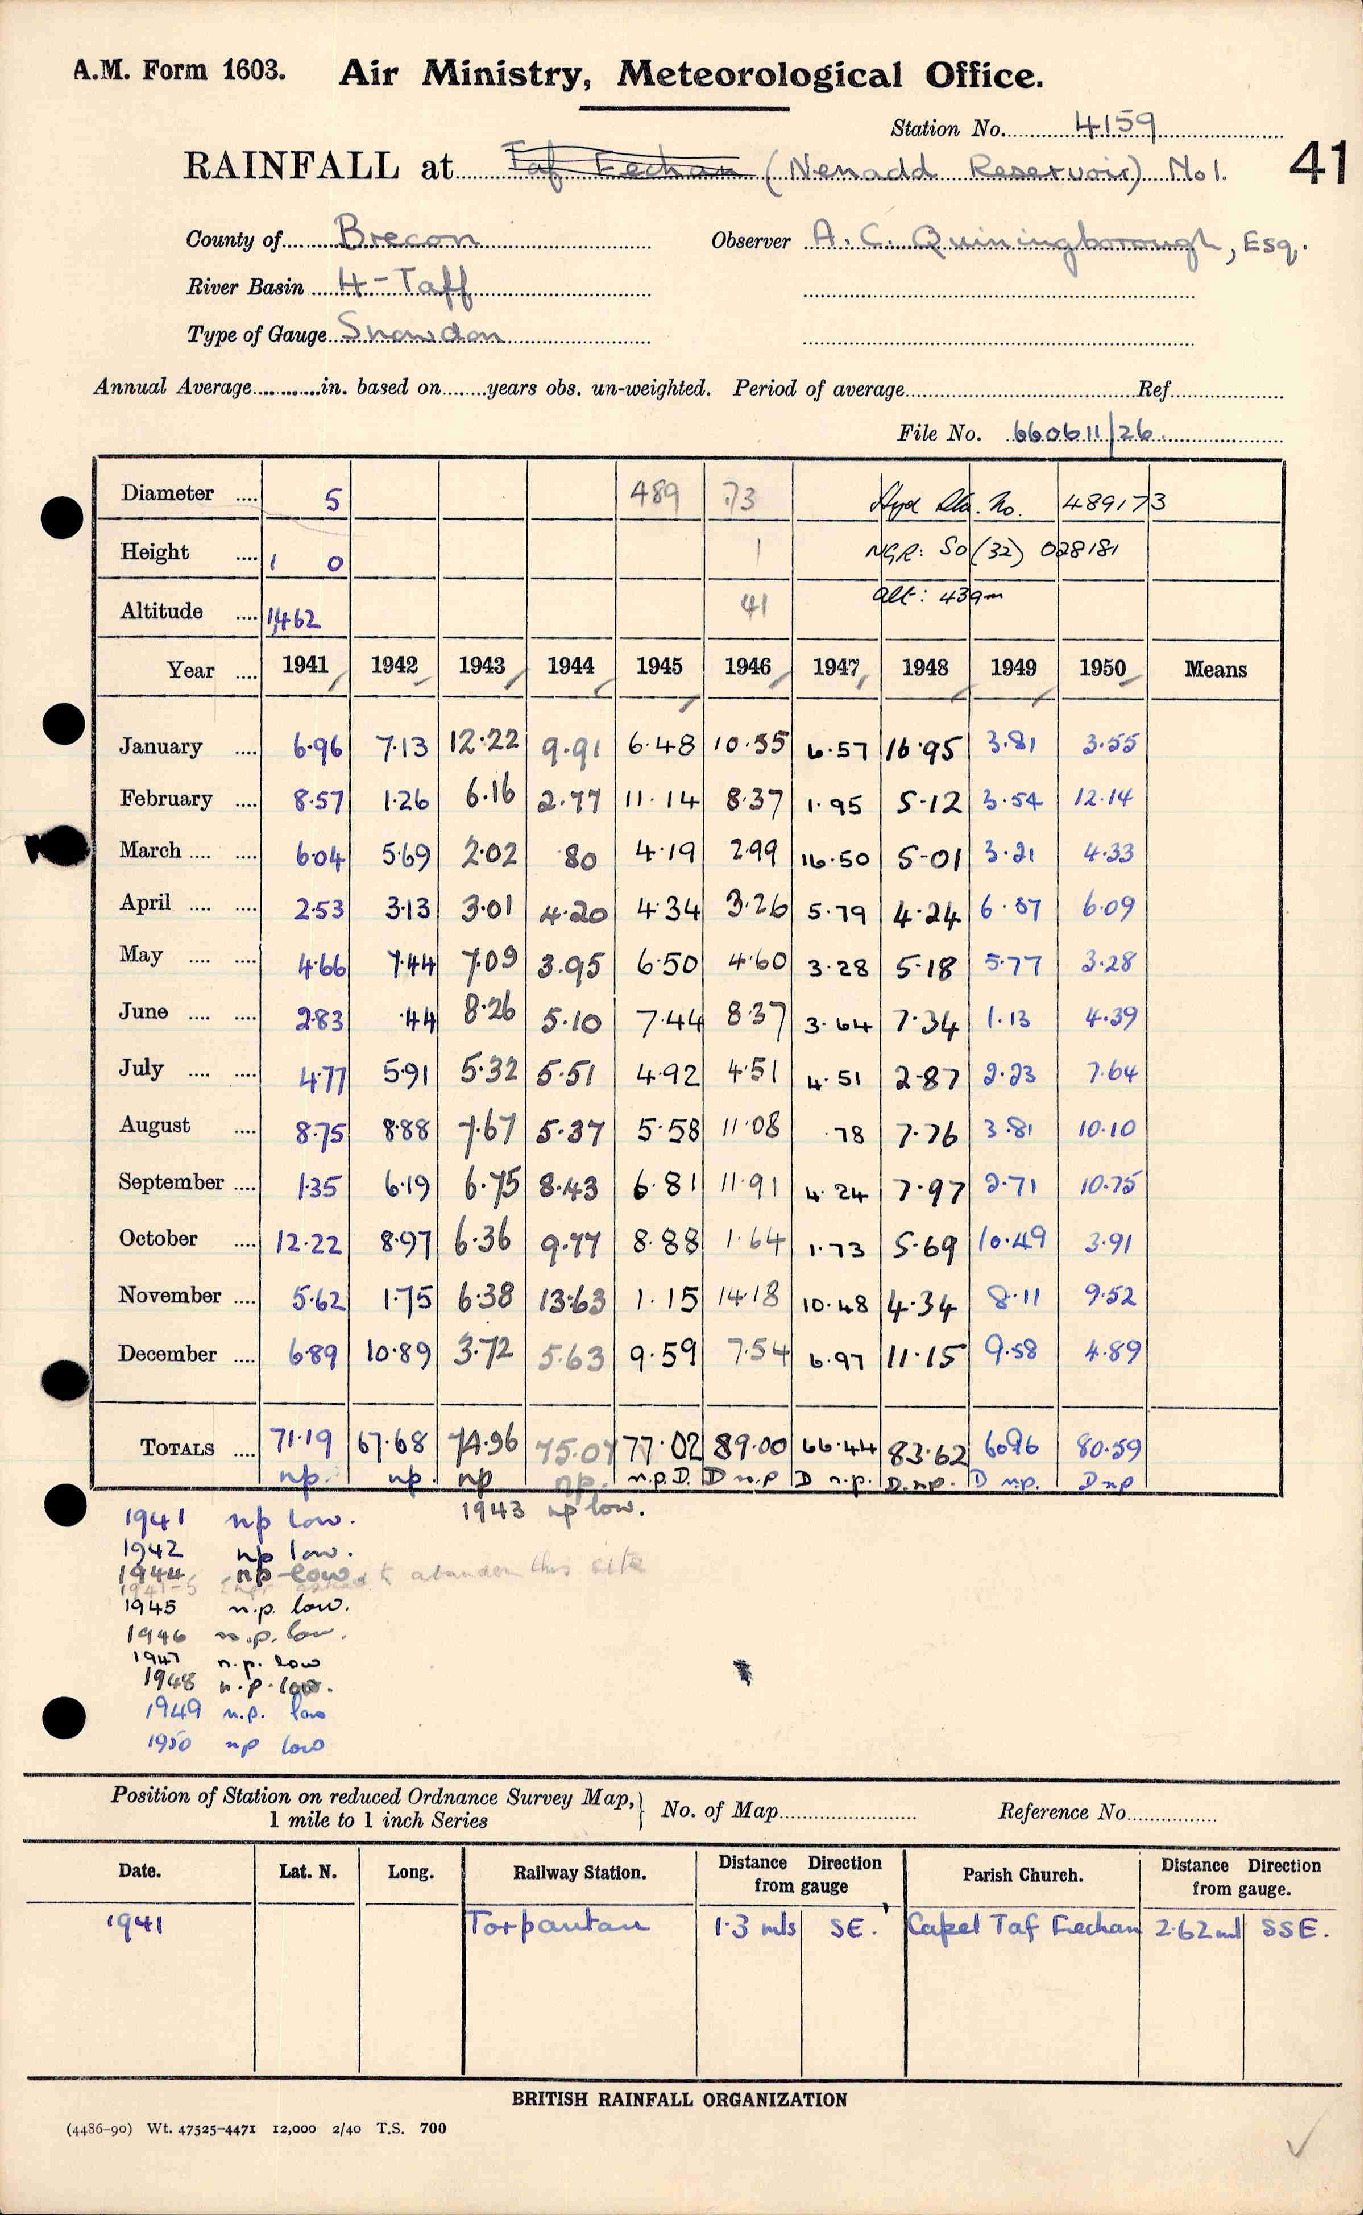 A.M. Form 1603. Air Ministry, Meteorological Office.
Station No. 4159
RAINFALL at Taf Fechan (Nenadd Reservoir) No1. 41
County of Brecon Observer A. C. Quiningborough, Esq.
River Basin 4-Taff
Type of Gauge Snowdon
Annual Average in. based on years obs. un-weighted. Period of average Ref
File No. 660611/26
Diameter 5 489 173 Hyd No. 489173
Height 1 0 1 NGR: SO (32) 028181
Altitude 1,462 41 alt: 439m
Year 1941 1942 1943 1944 1945 1946 1947 1948 1949 1950 Means
January 6.96 7.13 12.22 9.91 6.48 10.55 6.57 16.95 3.81 3.55
February 8.57 1.26 6.16 2.77 11.14 8.37 1.95 5.12 3.54 12.14
March 6.04 5.69 2.02 .80 4.19 2.99 16.50 5.01 3.21 4.33
April 2.53 3.13 3.01 4.20 4.34 3.26 5.79 4.24 6.57 6.09
May 4.66 7.44 7.09 3.95 6.50 4.60 3.28 5.18 5.77 3.28
June 2.83 .44 8.26 5.10 7.44 8.37 3.64 7.34 1.13 4.39
July 4.77 5.91 5.32 5.51 4.92 4.51 4.51 2.87 2.23 7.64
August 8.75 8.88 7.67 5.37 5.58 11.08 .78 7.76 3.81 10.10
September 1.35 6.19 6.75 8.43 6.81 11.91 4.24 7.97 2.71 10.75
October 12.22 8.97 6.36 9.77 8.88 1.64 1.73 5.69 10.49 3.91
November 5.62 1.75 6.38 13.63 1.15 14.18 10.48 4.34 8.11 9.52
December 6.89 10.89 3.72 5.63 9.59 7.54 6.97 11.15 9.58 4.89
TOTALS 71.19 67.68 74.96 75.07 77.02 89.00 66.44 83.62 60.96 80.59
np. np. np np. n.p.D. D n.p D n.p. D.np. D np. D np
1941 np low. 1943 np low.
1942 np low.
1944 np low
1941-5 asked to abandon this site
1945 n.p. low.
1946 n.p. low.
1947 n.p. low
1948 n.p. low.
1949 n.p. low
1950 np low
Position of Station on reduced Ordnance Survey Map, 1 mile to 1 inch Series } No. of Map Reference No
Date. Lat. N. Long. Railway Station. Distance Direction from gauge Parish Church. Distance Direction from gauge.
1941 Torpantau 1.3 mls SE. Capel Taf Fechan 2.62 ml SSE.
BRITISH RAINFALL ORGANIZATION
(4486-90) Wt. 47525-4471 12,000 2/40 T.S. 700